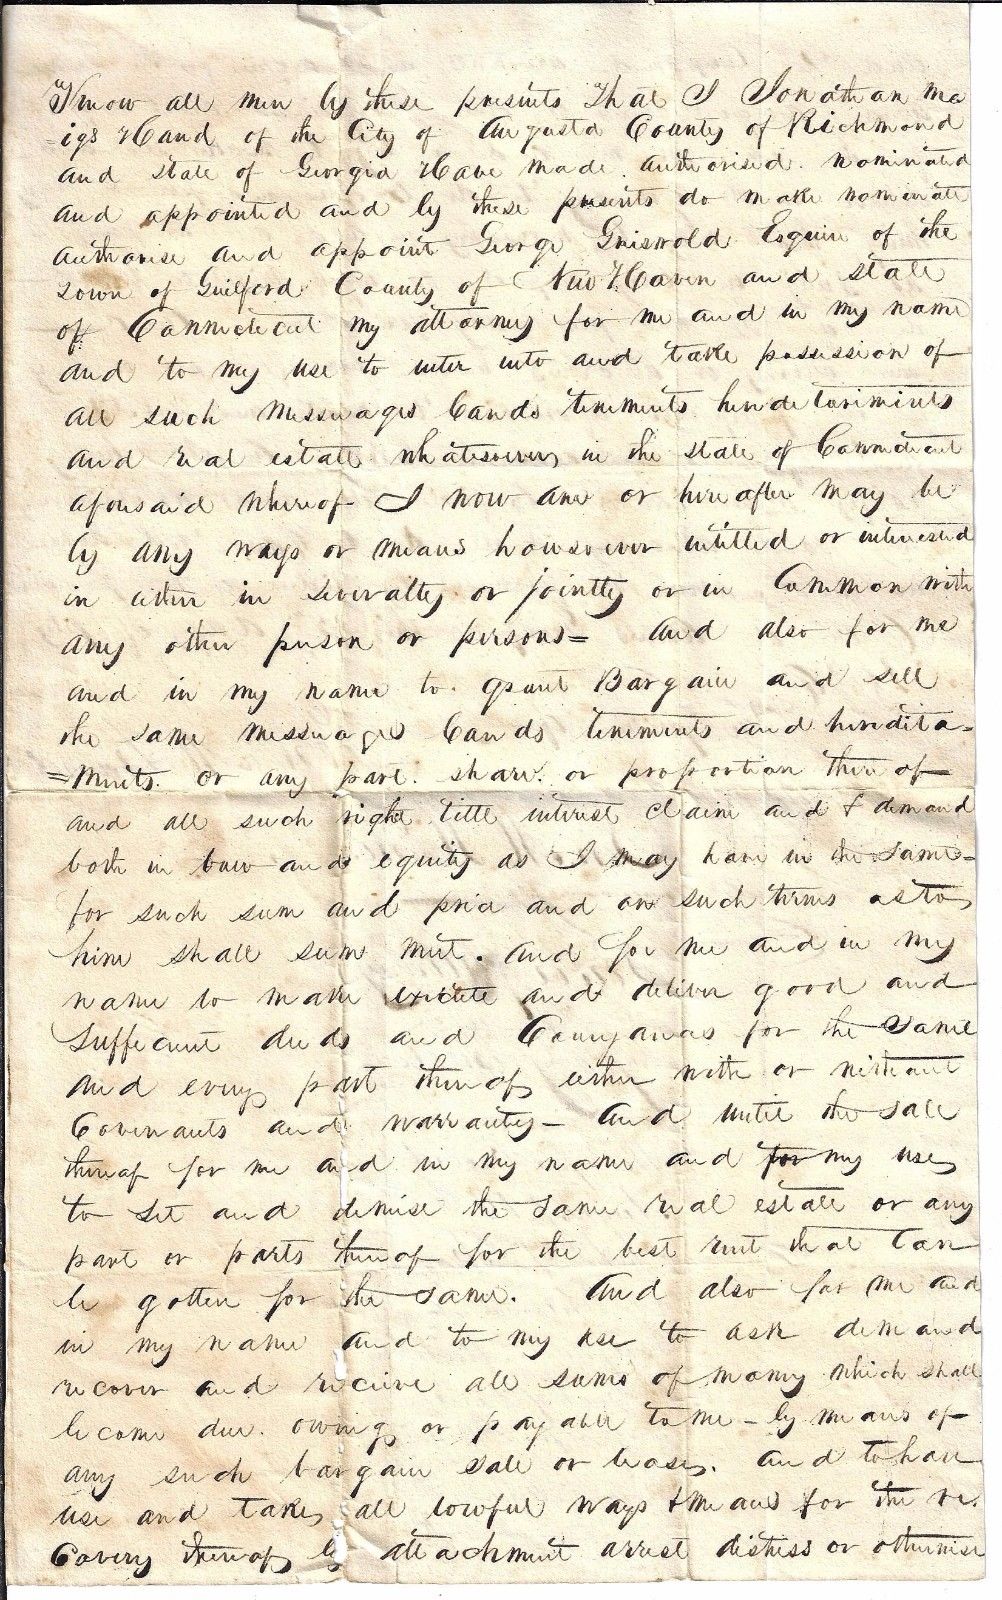 "Know all men by these presents That I Jonathan Me
=igs Hand of the City of Augusta County of Richmond
and state of Georgia Have made. authorised. nominated
and appointed and by these presents do make nominate
authorise and appoint George Griswold Esquire of the
town of Guilford County of New Haven and state
of Connecticut my attorney for me and in my name
and to my use to enter into and take possession of
all such messuages Lands tenements heredetariments
and real estate whatsoever, in the state of Connecticut
aforesaid whereof I now am or hereafter may be
by any ways or means howsoever intitled or interested
in either in severalty or jointly or in Common with
any other person or persons= and also for me
and in my name to. grant Bargain and sell
the same messuages Lands tenements and heredita=
=ments. or any part. share. or proportion thereof
and all such right title interest claim and & demand
both in Law and equity as I may have in the same=
for such sum and price and on such terms as to
him shall seem meet. and for me and in my
name to make execute and deliver good and
sufficient deeds and Conveyances for the same
and every part thereof either with or without
Covenants and warranty- and untill the sale
thereof for me and in my name and for my use,
to let and demise the same real estate or any
part or parts thereof for the best rent that Can
be gotten for the same. And also for me and
in my name and to my use to ask demand
recover and receive all sums of money which shall
become due. owing or payable to me - by means of
any such bargain sale or lease. and to have
use and take, all lawful ways & means for the re.
Covery thereof by attachment arrest distress or otherwise